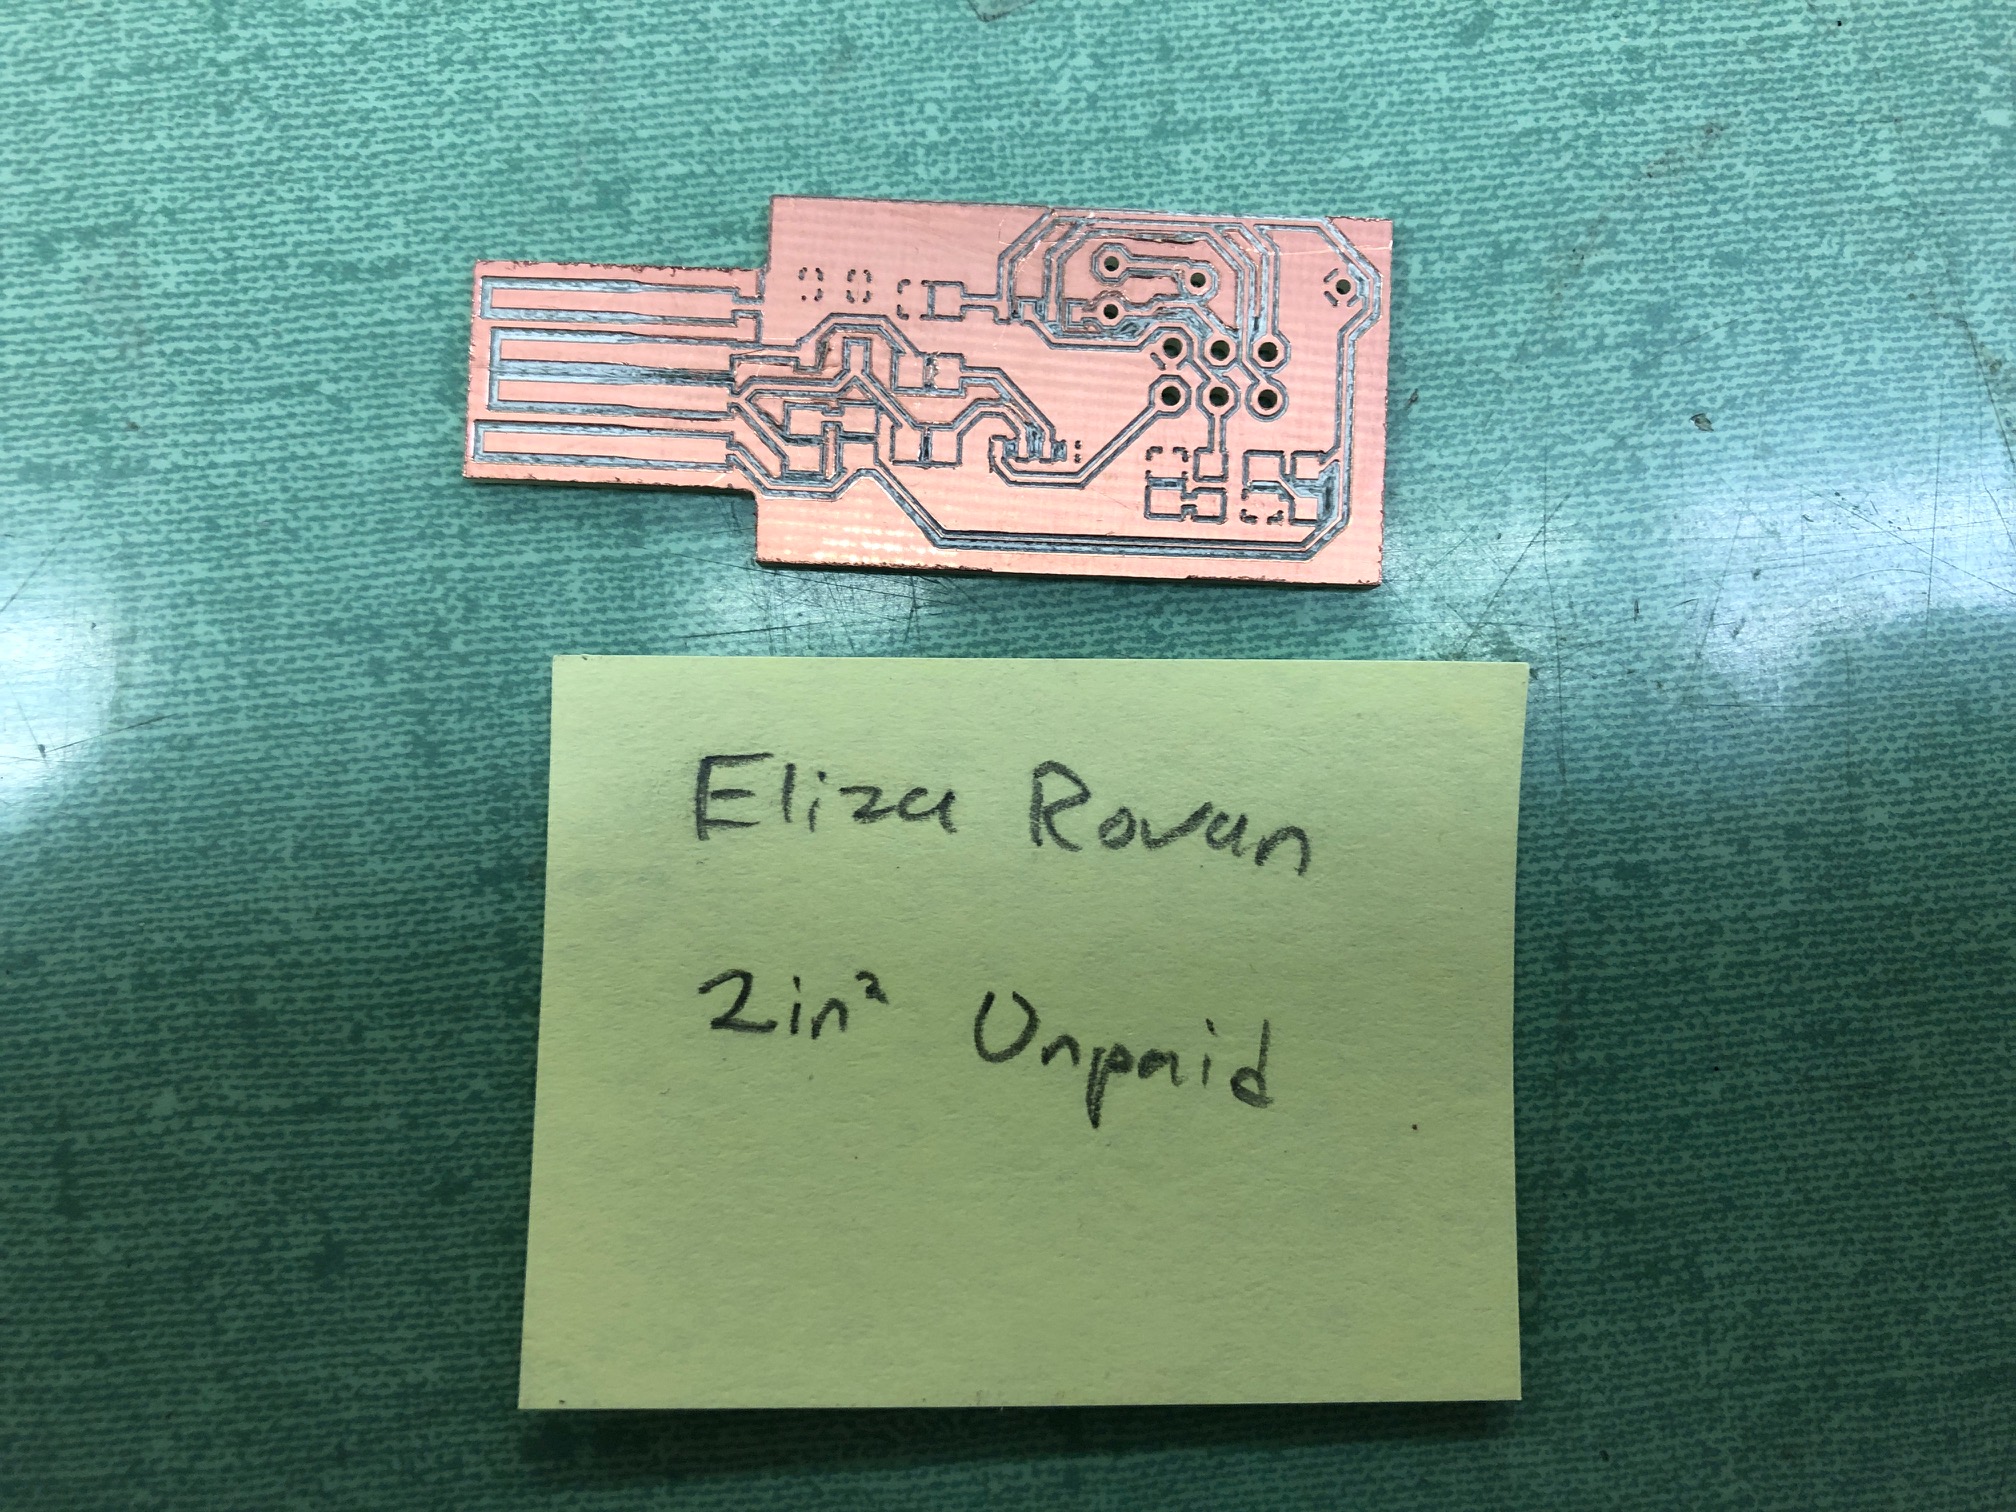 Eliza Rovan
2in² Unpaid